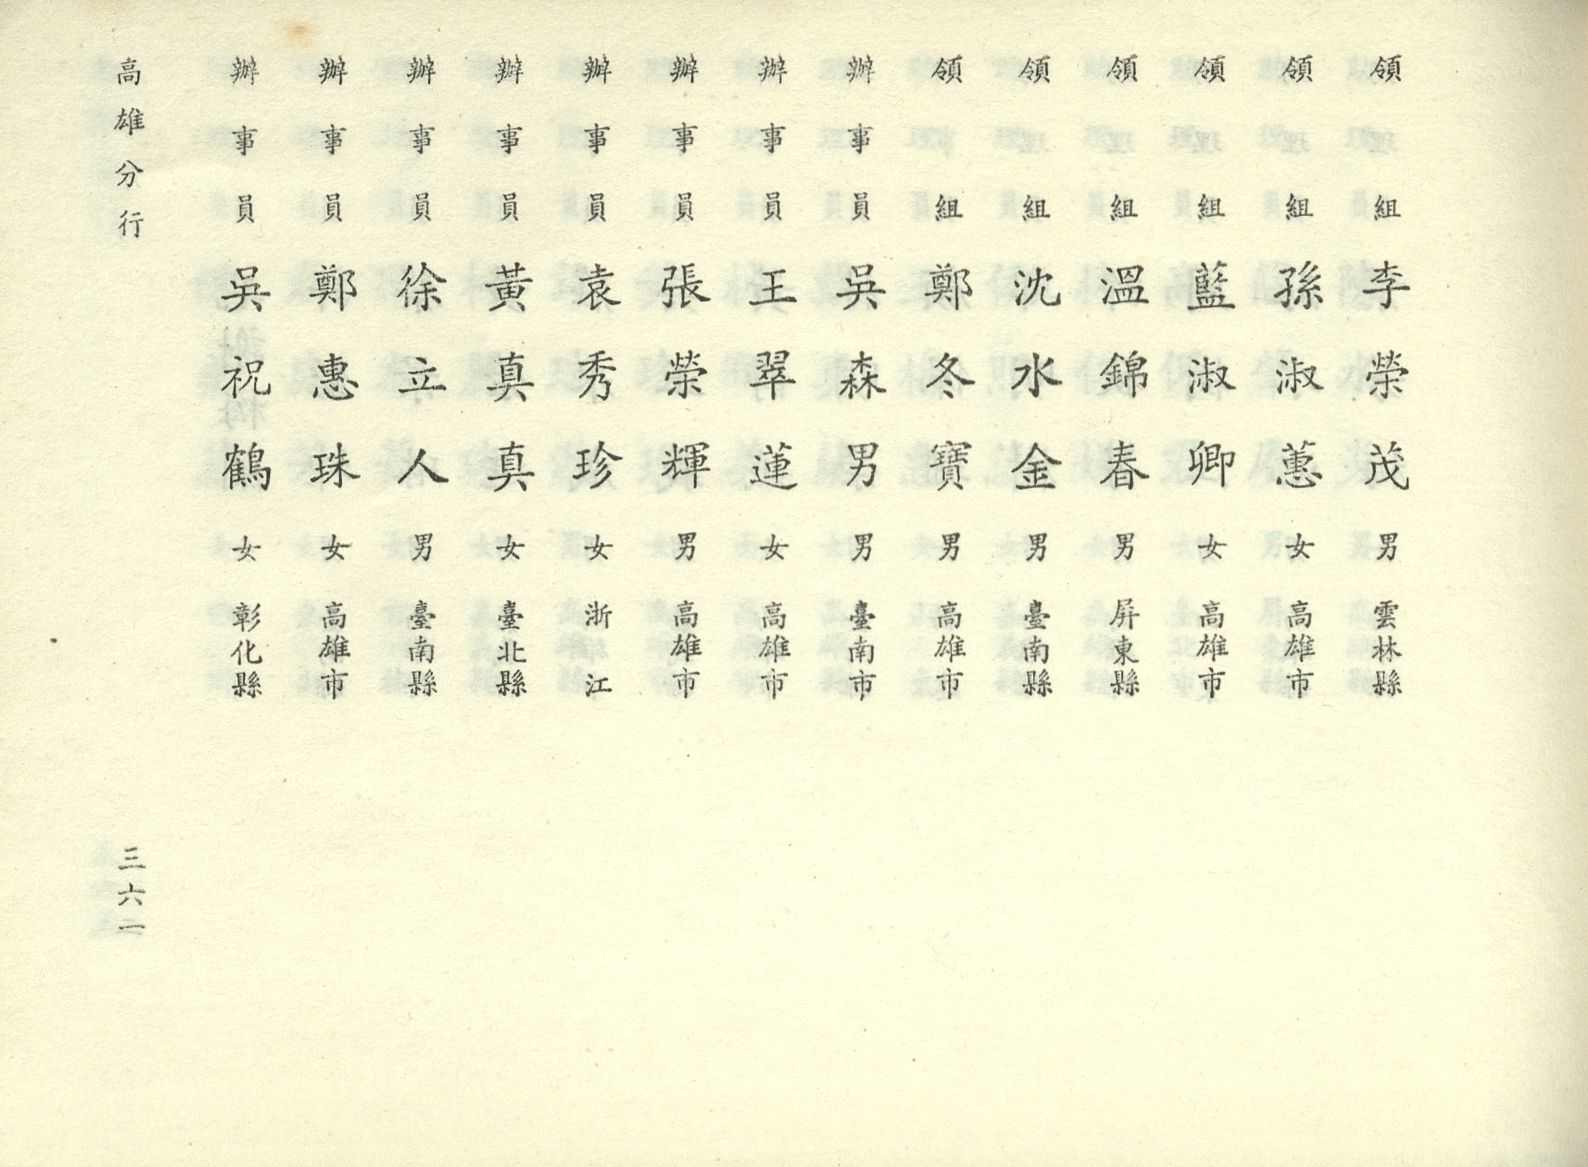 領組 李榮茂 男 雲林縣
領組 孫淑蕙 女 高雄市
領組 藍淑卿 女 高雄市
領組 溫錦春 男 屏東縣
領組 沈水金 男 臺南縣
領組 鄭冬寶 男 高雄市
辦事員 吳森男 男 臺南市
辦事員 王翠蓮 女 高雄市
辦事員 張榮輝 男 高雄市
辦事員 袁秀珍 女 浙江
辦事員 黃真真 女 臺北縣
辦事員 徐立人 男 臺南縣
辦事員 鄭惠珠 女 高雄市
辦事員 吳祝鶴 女 彰化縣
高雄分行
三六一